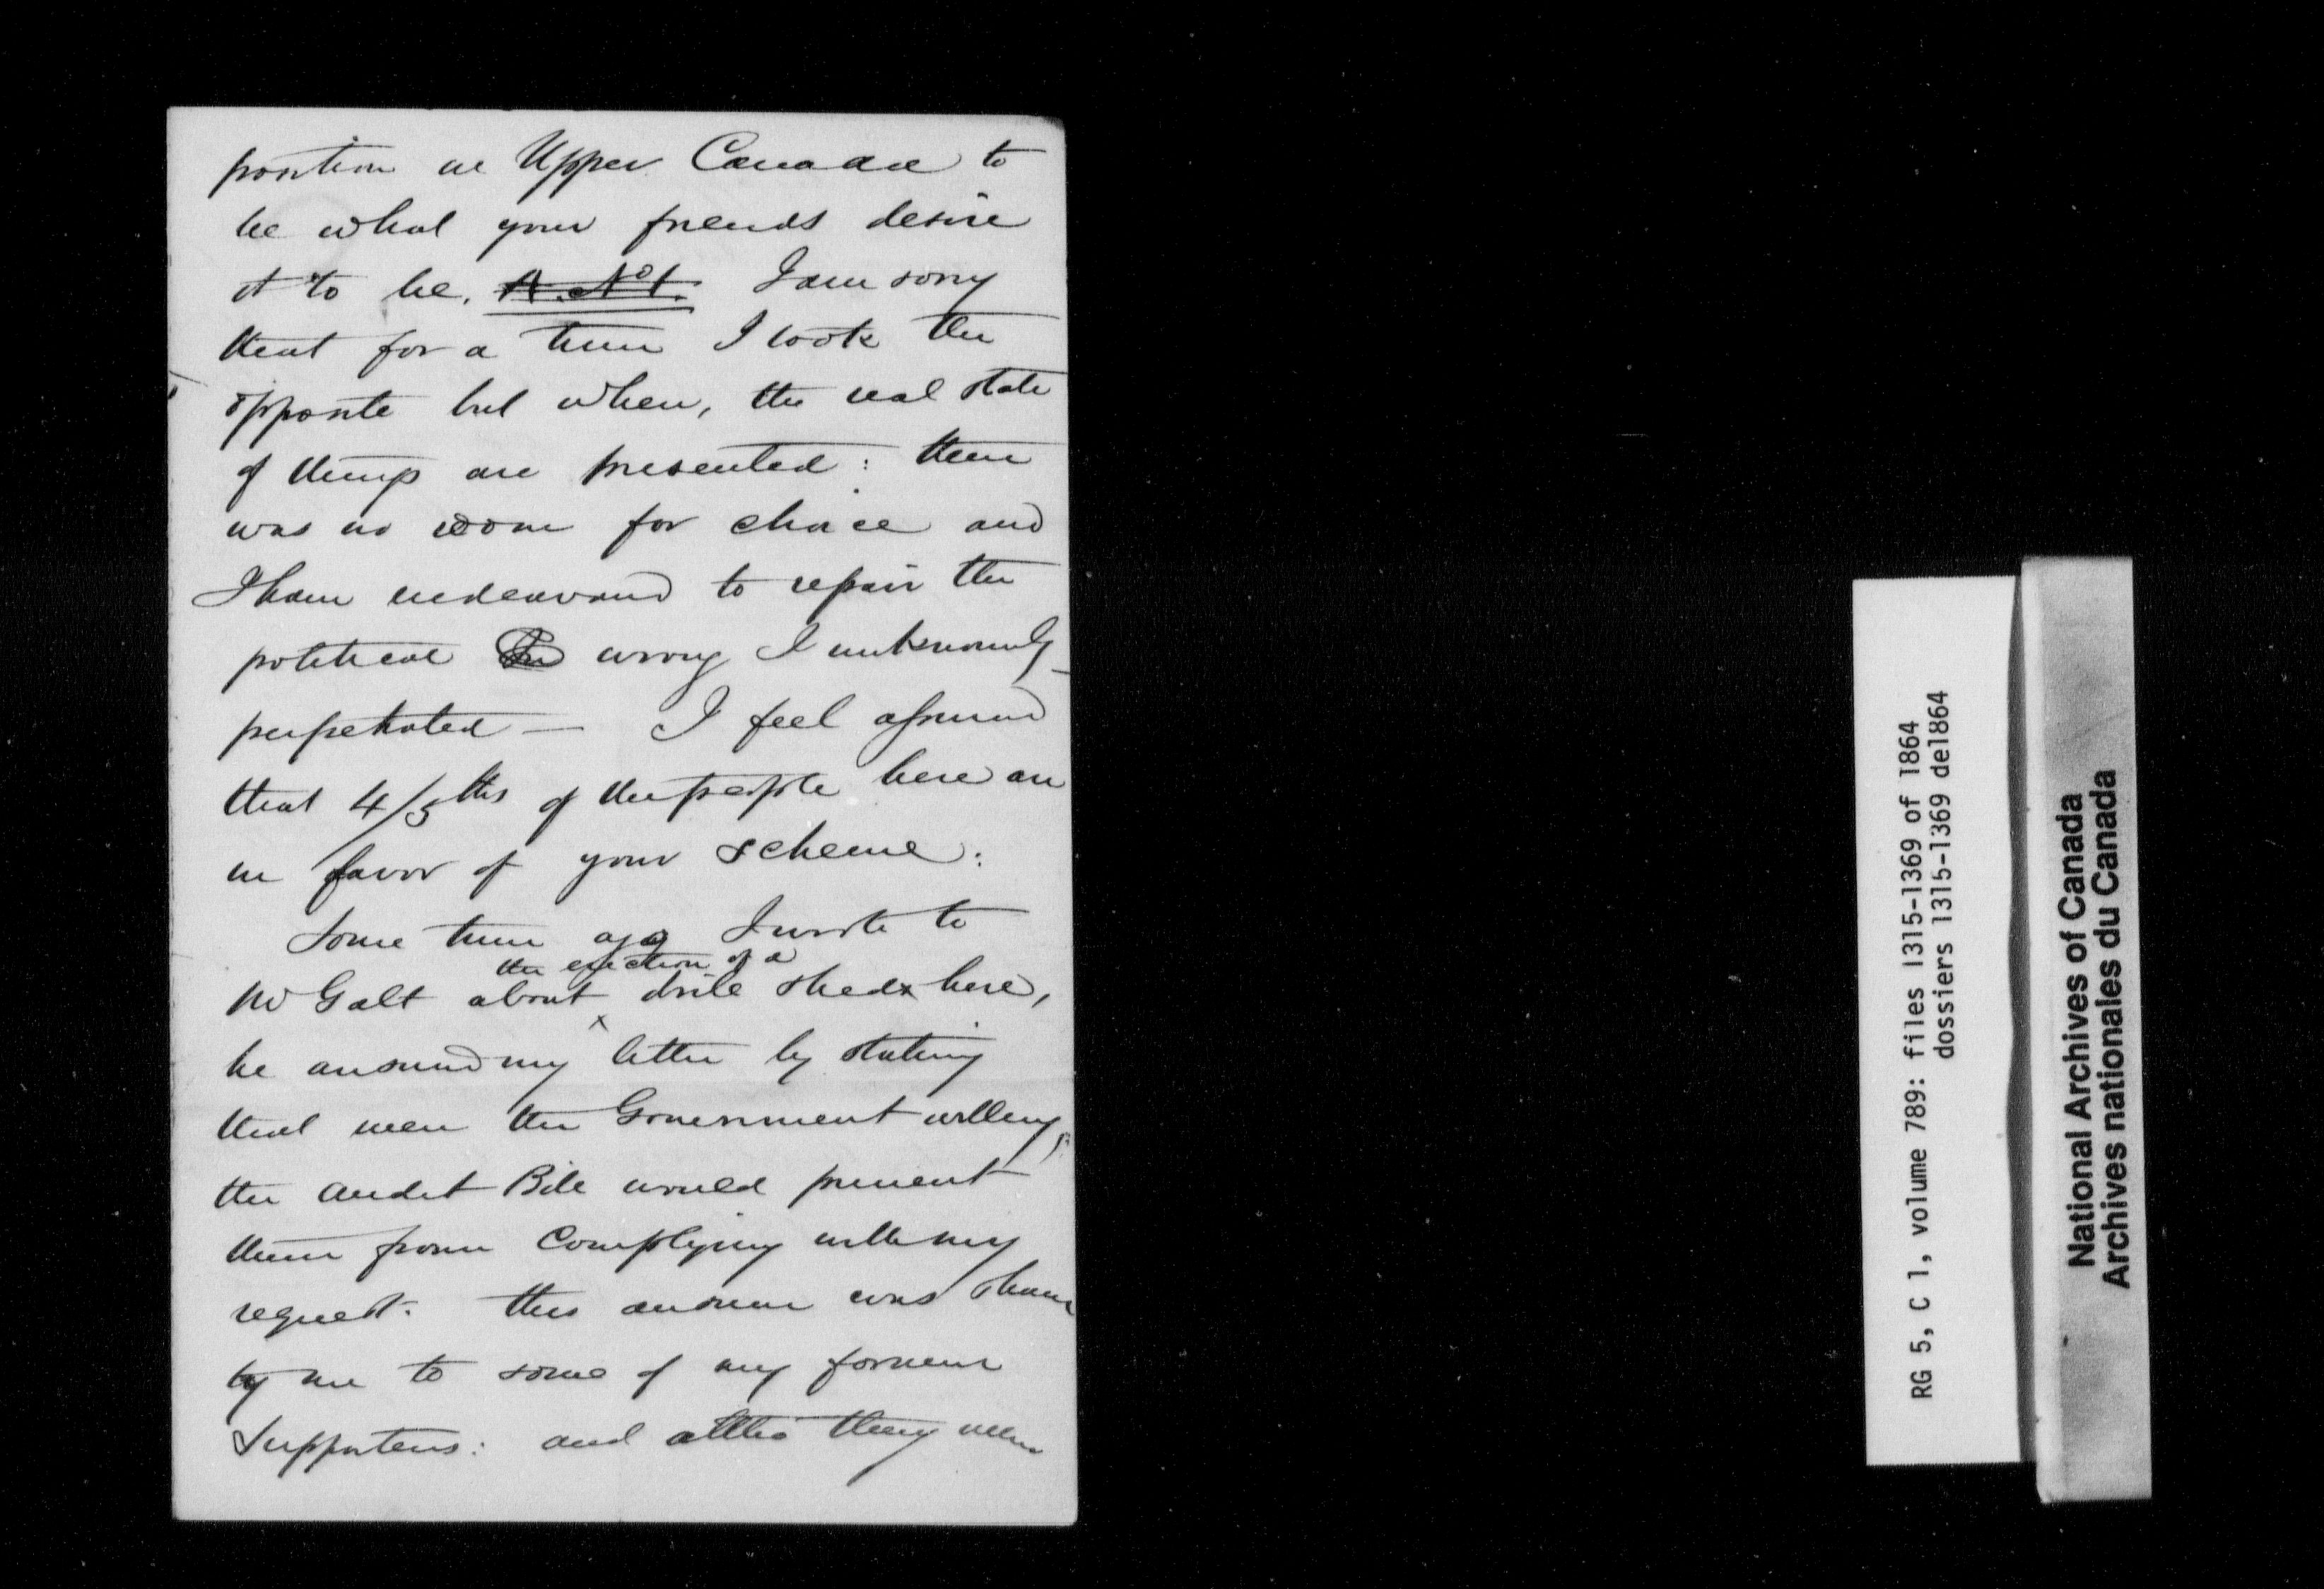 position in Upper Canada to
be what your friends desire
it to be. A. No 1. I am sorry
that for a time I took the
opposite but when, the real state
of things are presented: there
was no room for choice and
I have endeavored to repair the
political wrong I unknowingly
perpetrated — I feel assured
that 4/5ths of the people here are
in favor of your scheme:
Some time ago I wrote to
Mr Galt about the erection of a drill sheds here,
he answered my letter by stating
that were the Government willing,
the audit Bill would prevent
them from complying with my
request. this answer was shown
by me to some of my former
supporters: and altho they were
RG 5, C 1, volume 789: files 1315-1369 of 1864
dossiers 1315-1369 de1864
National Archives of Canada
Archives nationales du Canada